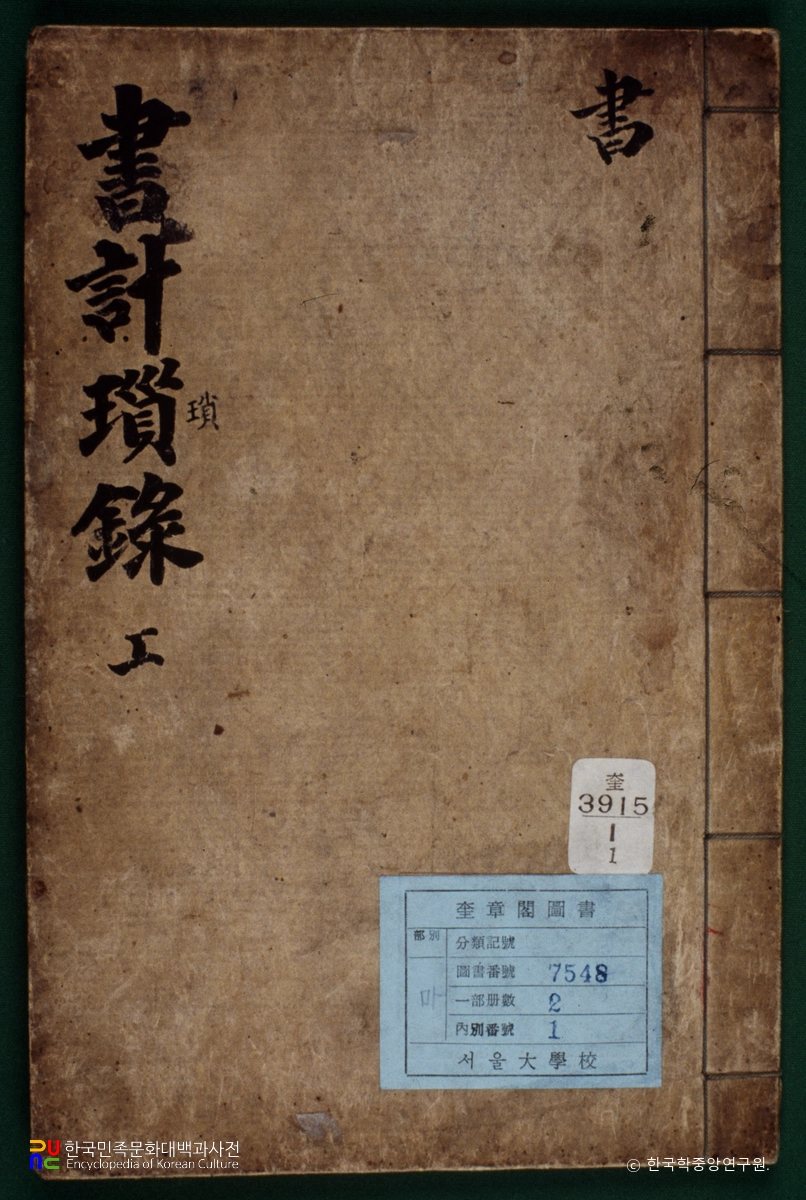 書
書計瑣錄 工
瑣
奎
3915
1
1
奎章閣圖書
部別
마
分類記號
圖書番號 7548
一部册數 2
內別番號 1
서울大學校
한국민족문화대백과사전
Encyclopedia of Korean Culture
© 한국학중앙연구원.